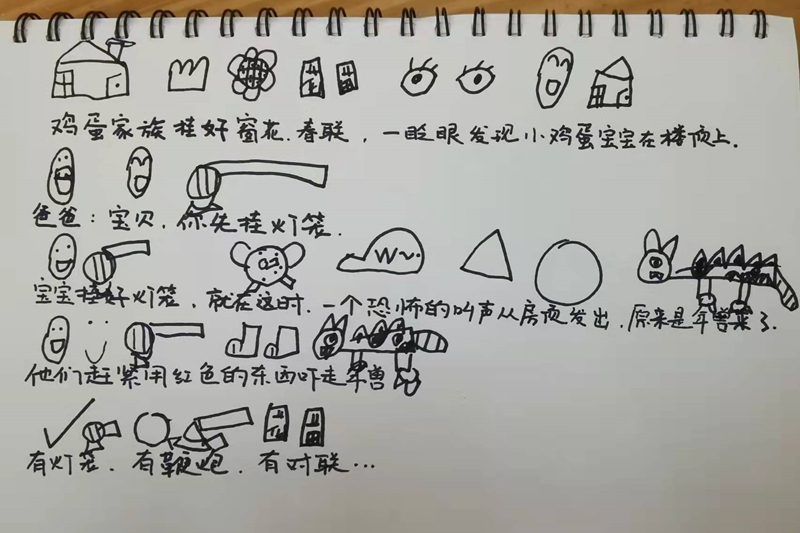 鸡蛋家族挂好窗花、春联，一眨眼发现小鸡蛋宝宝在楼顶上.
爸爸：宝贝，你先挂灯笼.
W~
宝宝挂好灯笼，就在这时，一个恐怖的叫声从房顶发出，原来是年兽来了.
他们赶紧用红色的东西吓走年兽
有灯笼，有鞭炮，有对联…